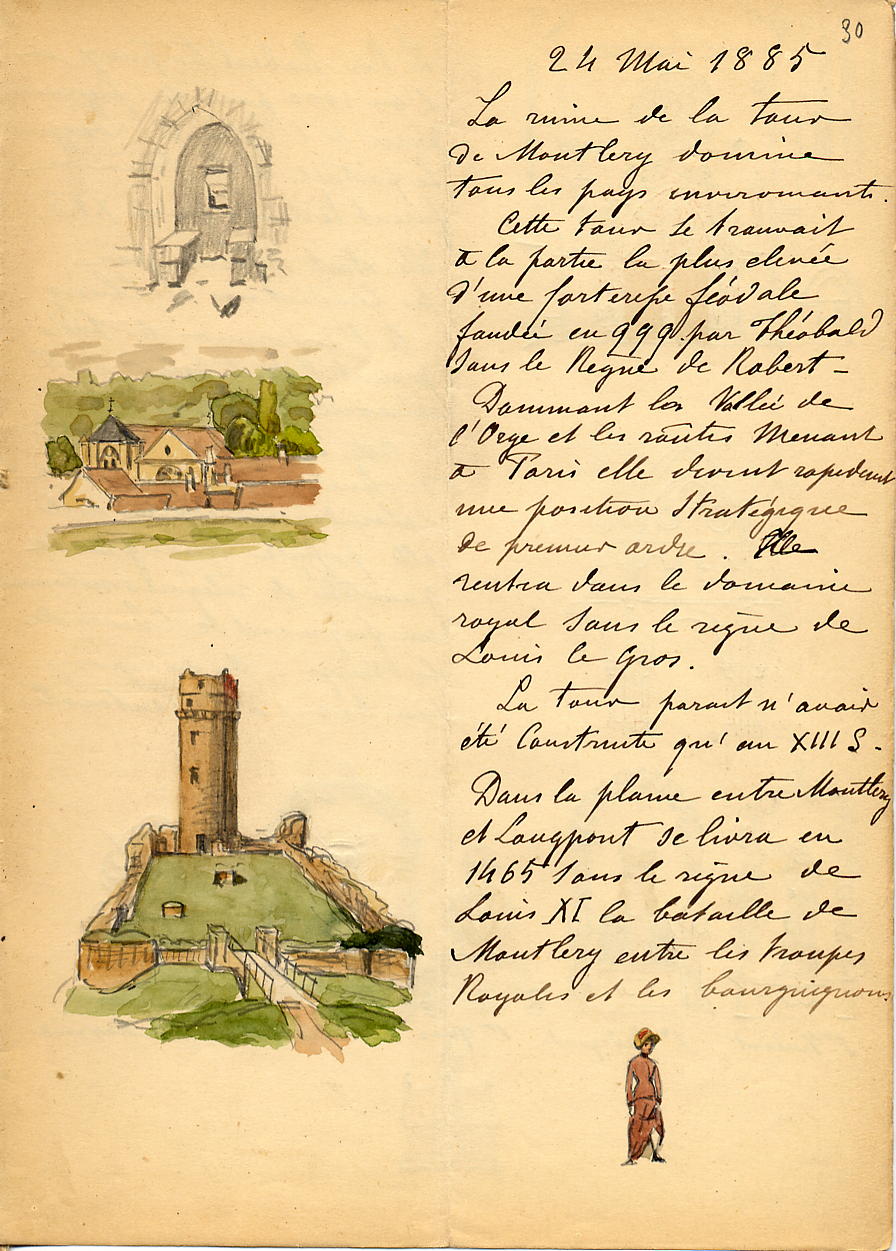 30
24 Mai 1885
La ruine de la tour
de Montlery domine
tous les pays environnants.
Cette tour se trouvait
a la partie la plus elevée
d'une forteresse féodale
fondée en 999 par Théobald
sous le Regne de Robert -
Dominant la Vallée de
l'Orge et les routes Menant
a Paris elle devint rapidement
une position Stratégique
de premier ordre. Elle
rentra dans le domaine
royal sous le règne de
Louis le Gros.
La tour parait n'avoir
été Construite qu'au XIII S -
Dans la plaine entre Montlery
et Longpont se livra en
1465 sous le règne de
Louis XI la bataille de
Montlery entre les troupes
Royales et les bourguignons